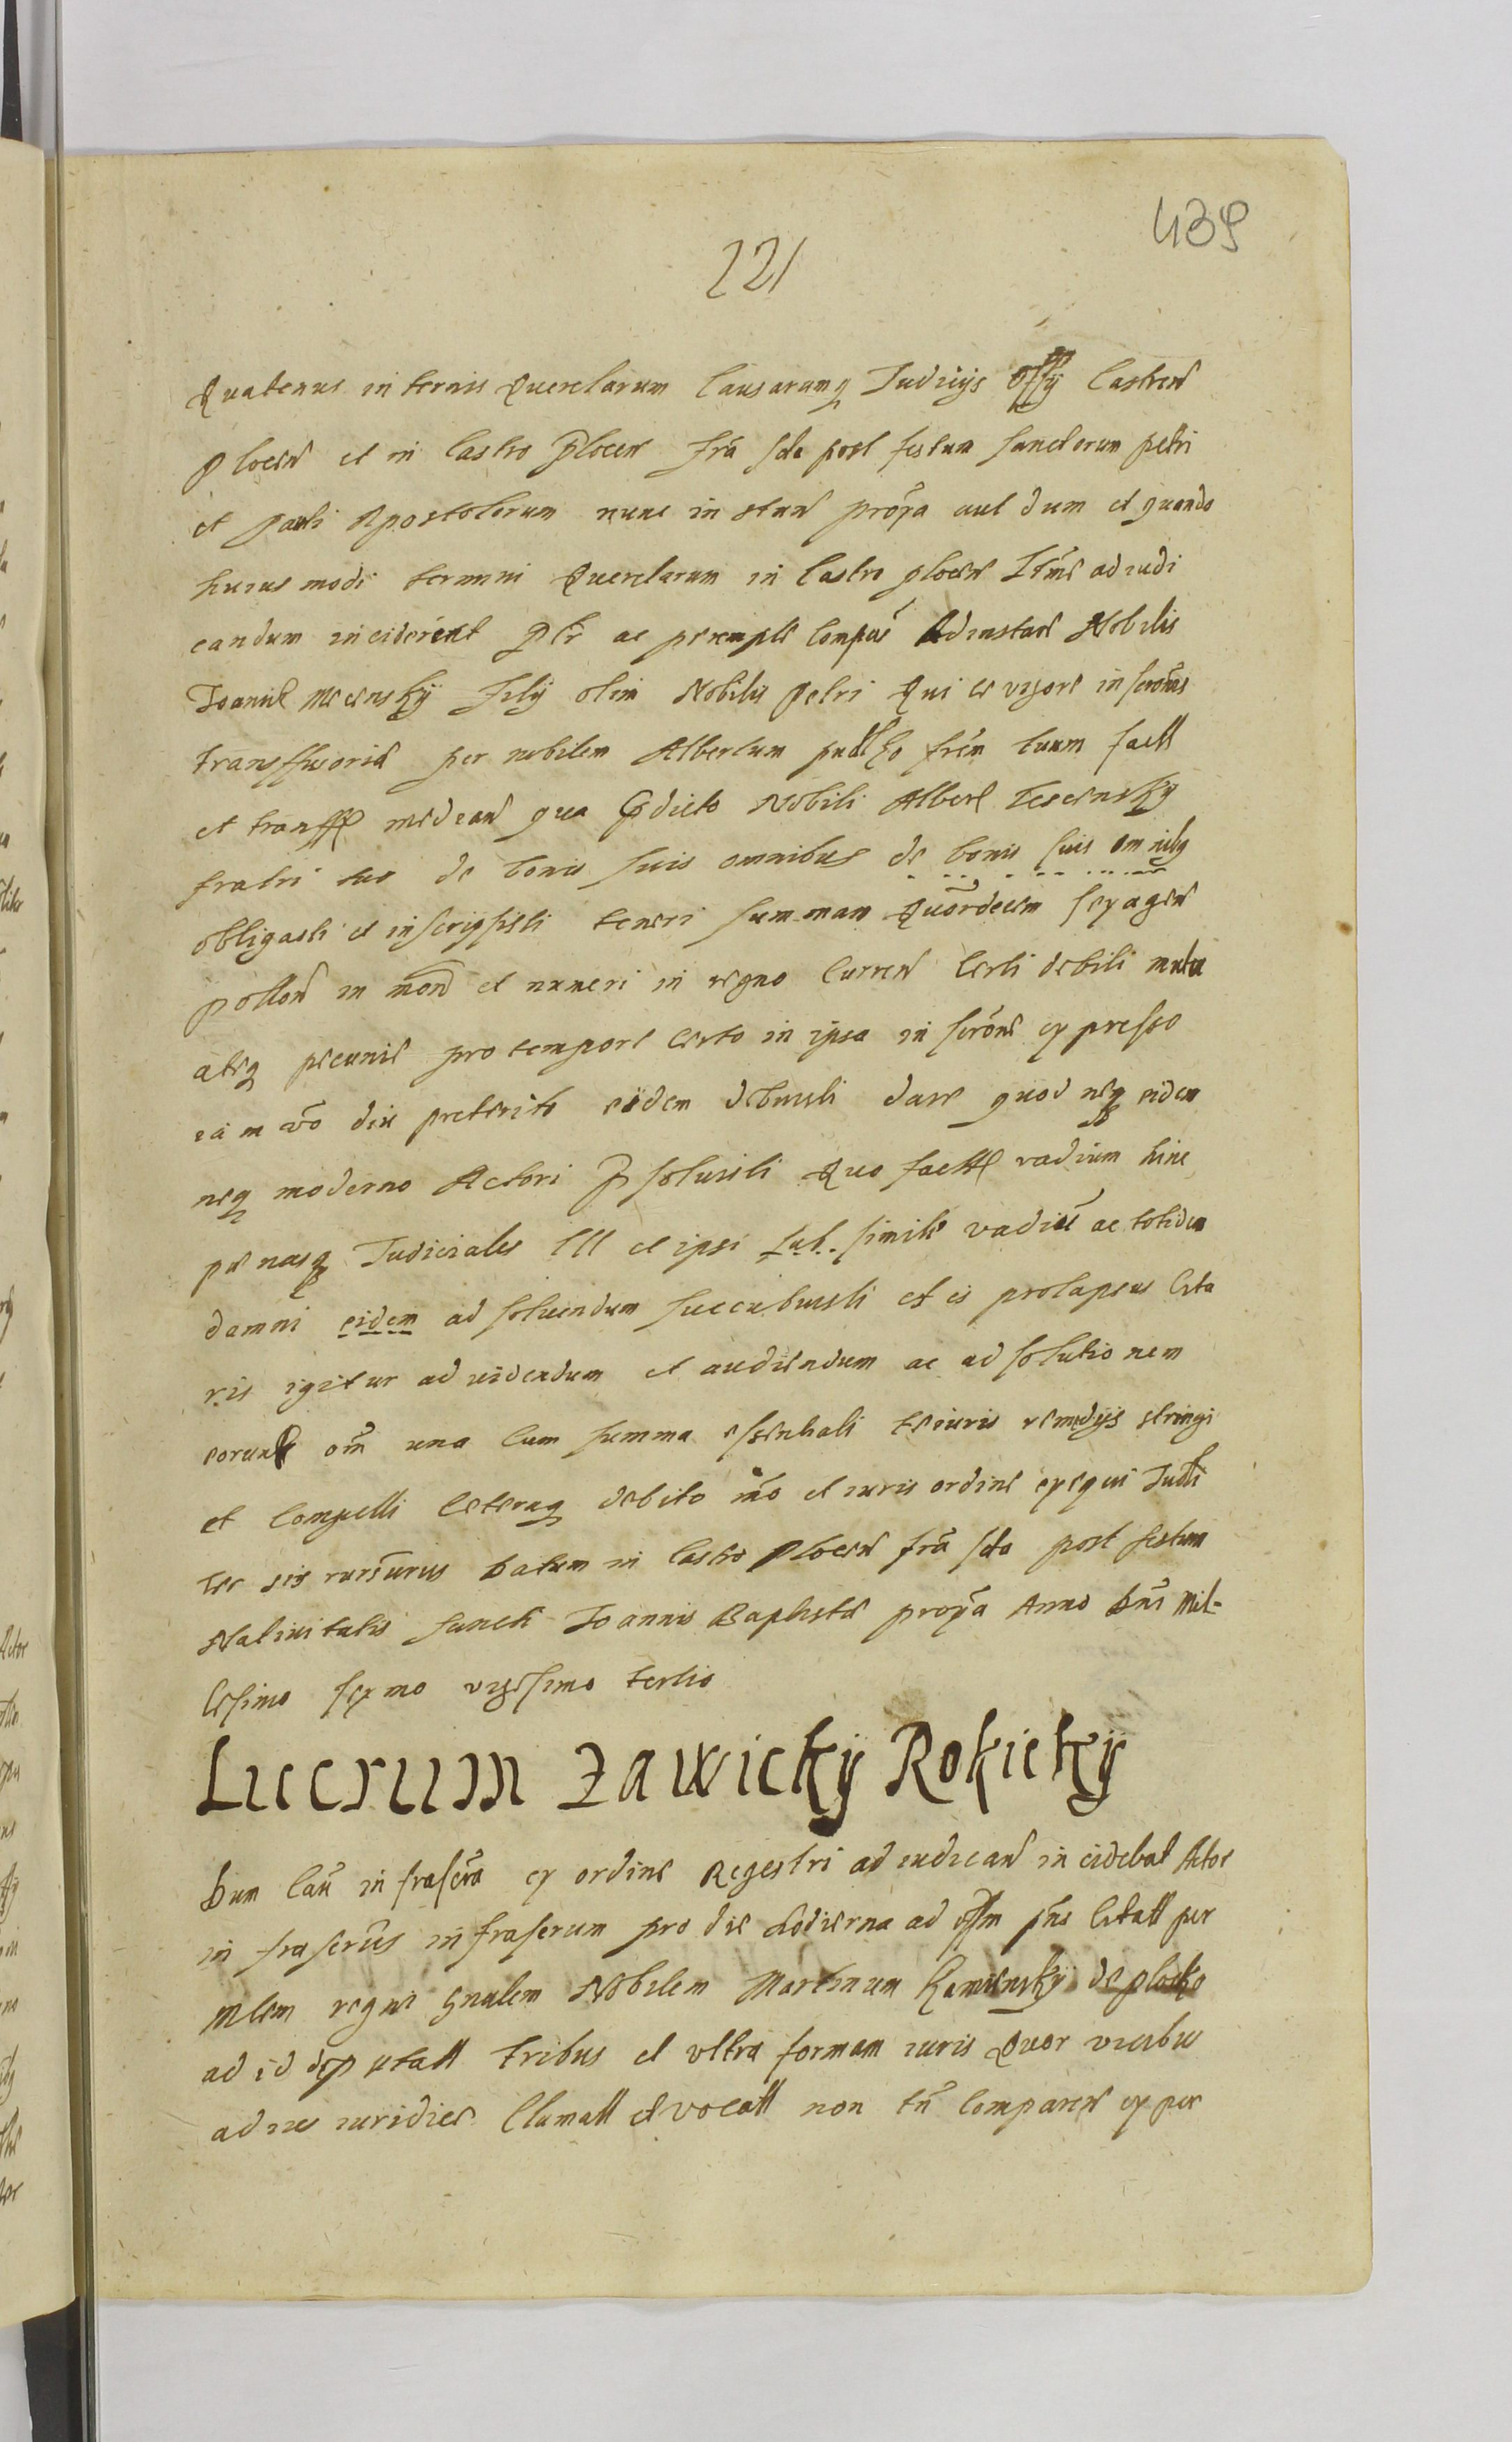 439
221
Quatenus in ternis Querelarum Causarumq Judicijs Offij Castren
Plocen et in Castro Plocen fra sda post festum sanctorum petri
et pauli Apostolorum nunc instan proxa aut dum et quando
huius modi termini Querelarum in Castro plocen Ltme ad iudi
candum inciderent Plr ac perempte Compas Ad instan Nobilis
Joannis Mecensky filij olim Nobilis petri Qui ce vigore inscronis
transffusoria per nobilem Albertum frem tuum factt
et transff median qua pdicto Nobili Albert Tesensky
fratri tuo de bonis suis omnibus de bonis suis omnibq
obligasti et inscripsisti teneri summam Quordecim sexagen
pollon in mon et numeri in regno Curren Certi debiti mutu
atq pecunie pro tempore Certo in ipsa inscrone expresso
iam vo diu preterito eidem debuisti dare quod neq eidem
neq moderno Actori p soluisti Quo factt vadium hinc
penasq Judiciales lll et ipsi sub simile vadiu ac totidem
damni eidem ad soluendum succubuisti et es prolapsus Cita
ris igitur ad videndum et audiendum ac ad solutionem
eorum om una Cum summa essentiali te iuris remedijs stringi
et Compelli Ceteraq debito mo et iuris ordine exequi Judli
ter sis rursurus Datum in Castro Plocen fra sda post festum
Natiuitatis sancti Joannis Baptiste proxa Anno Dni Mil-
lesimo sexmo vigesimo tertio
Lucrum Zawicky Rokicky
Dum Cau infrascra ex ordine Regestri ad iudican incidebat Actor
infrascrus infrascrum pro die hodierna ad offm pns Citatt per
mlem regni gnalem Nobilem Martinum Kamiensky de plocko
ad id deputatt tribus et vltra formam iuris Quor vicibus
ad ius iuridice Clamatt et vocatt non tn Comparen ex per